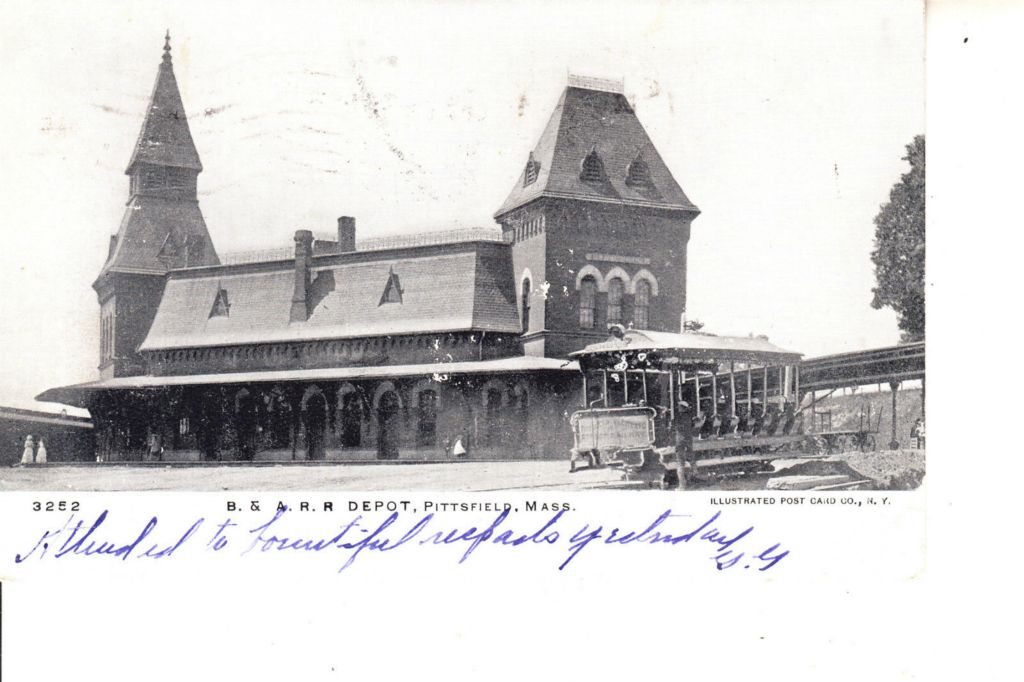 3252
B. & A. R. R DEPOT, PITTSFIELD, MASS.
ILLUSTRATED POST CARD CO., N. Y.
Attended to bountiful repasts yesterday
G.G